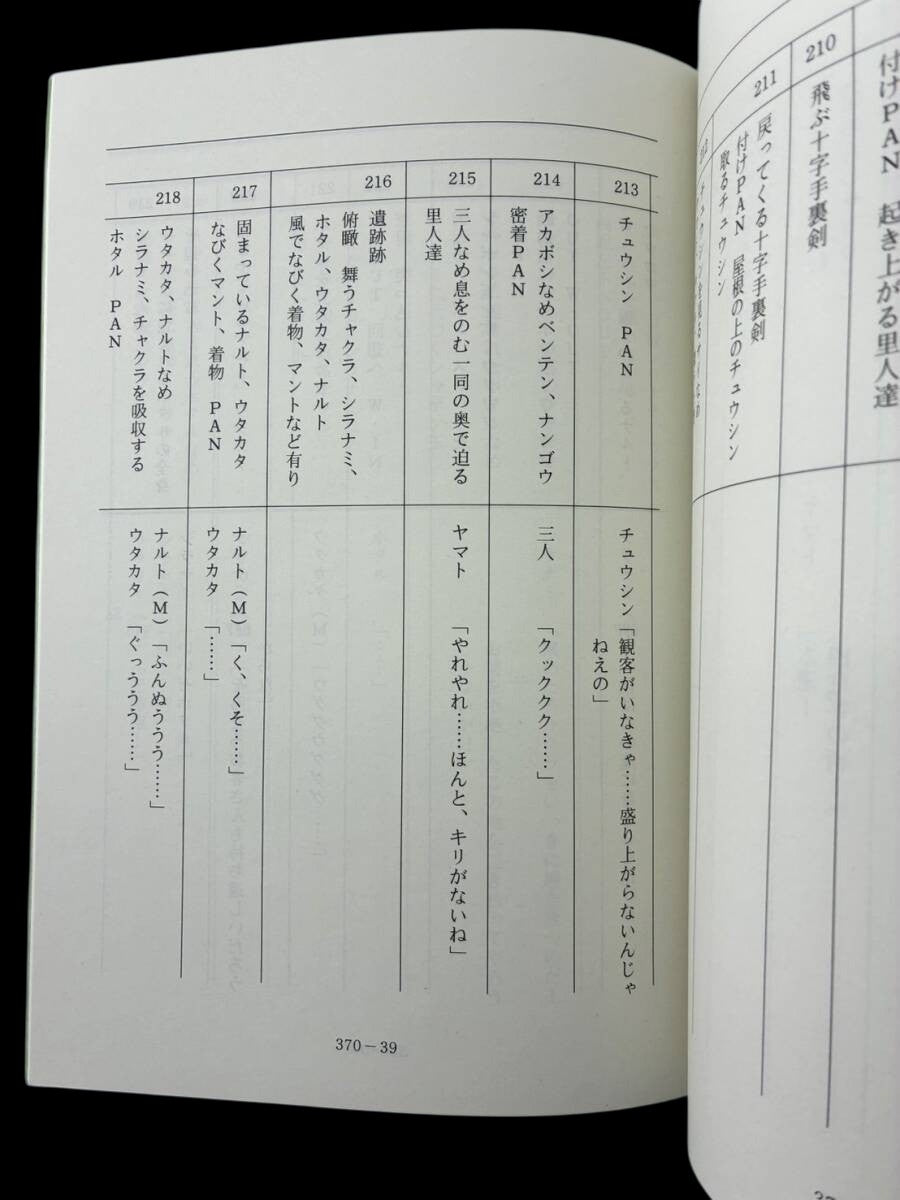 付けPAN　起き上がる里人達
210
飛ぶ十字手裏剣
211
戻ってくる十字手裏剣
付けPAN　屋根の上のチュウシン
取るチュウシン
213
チュウシン　PAN
チュウシン「観客がいなきゃ……盛り上がらないんじゃ
ねえの」
214
アカボシなめベンテン、ナンゴウ
密着PAN
三人　「クックックク……」
215
三人なめ息をのむ一同の奥で迫る
里人達
ヤマト　「やれやれ……ほんと、キリがないね」
216
遺跡跡
俯瞰　舞うチャクラ、シラナミ、
ホタル、ウタカタ、ナルト
風でなびく着物、マントなど有り
217
固まっているナルト、ウタカタ
なびくマント、着物　PAN
ナルト（M）「く、くそ……」
ウタカタ　「……」
218
ウタカタ、ナルトなめ
シラナミ、チャクラを吸収する
ホタル　PAN
ナルト（M）「ふんぬううう……」
ウタカタ　「ぐっううう……」
370－39